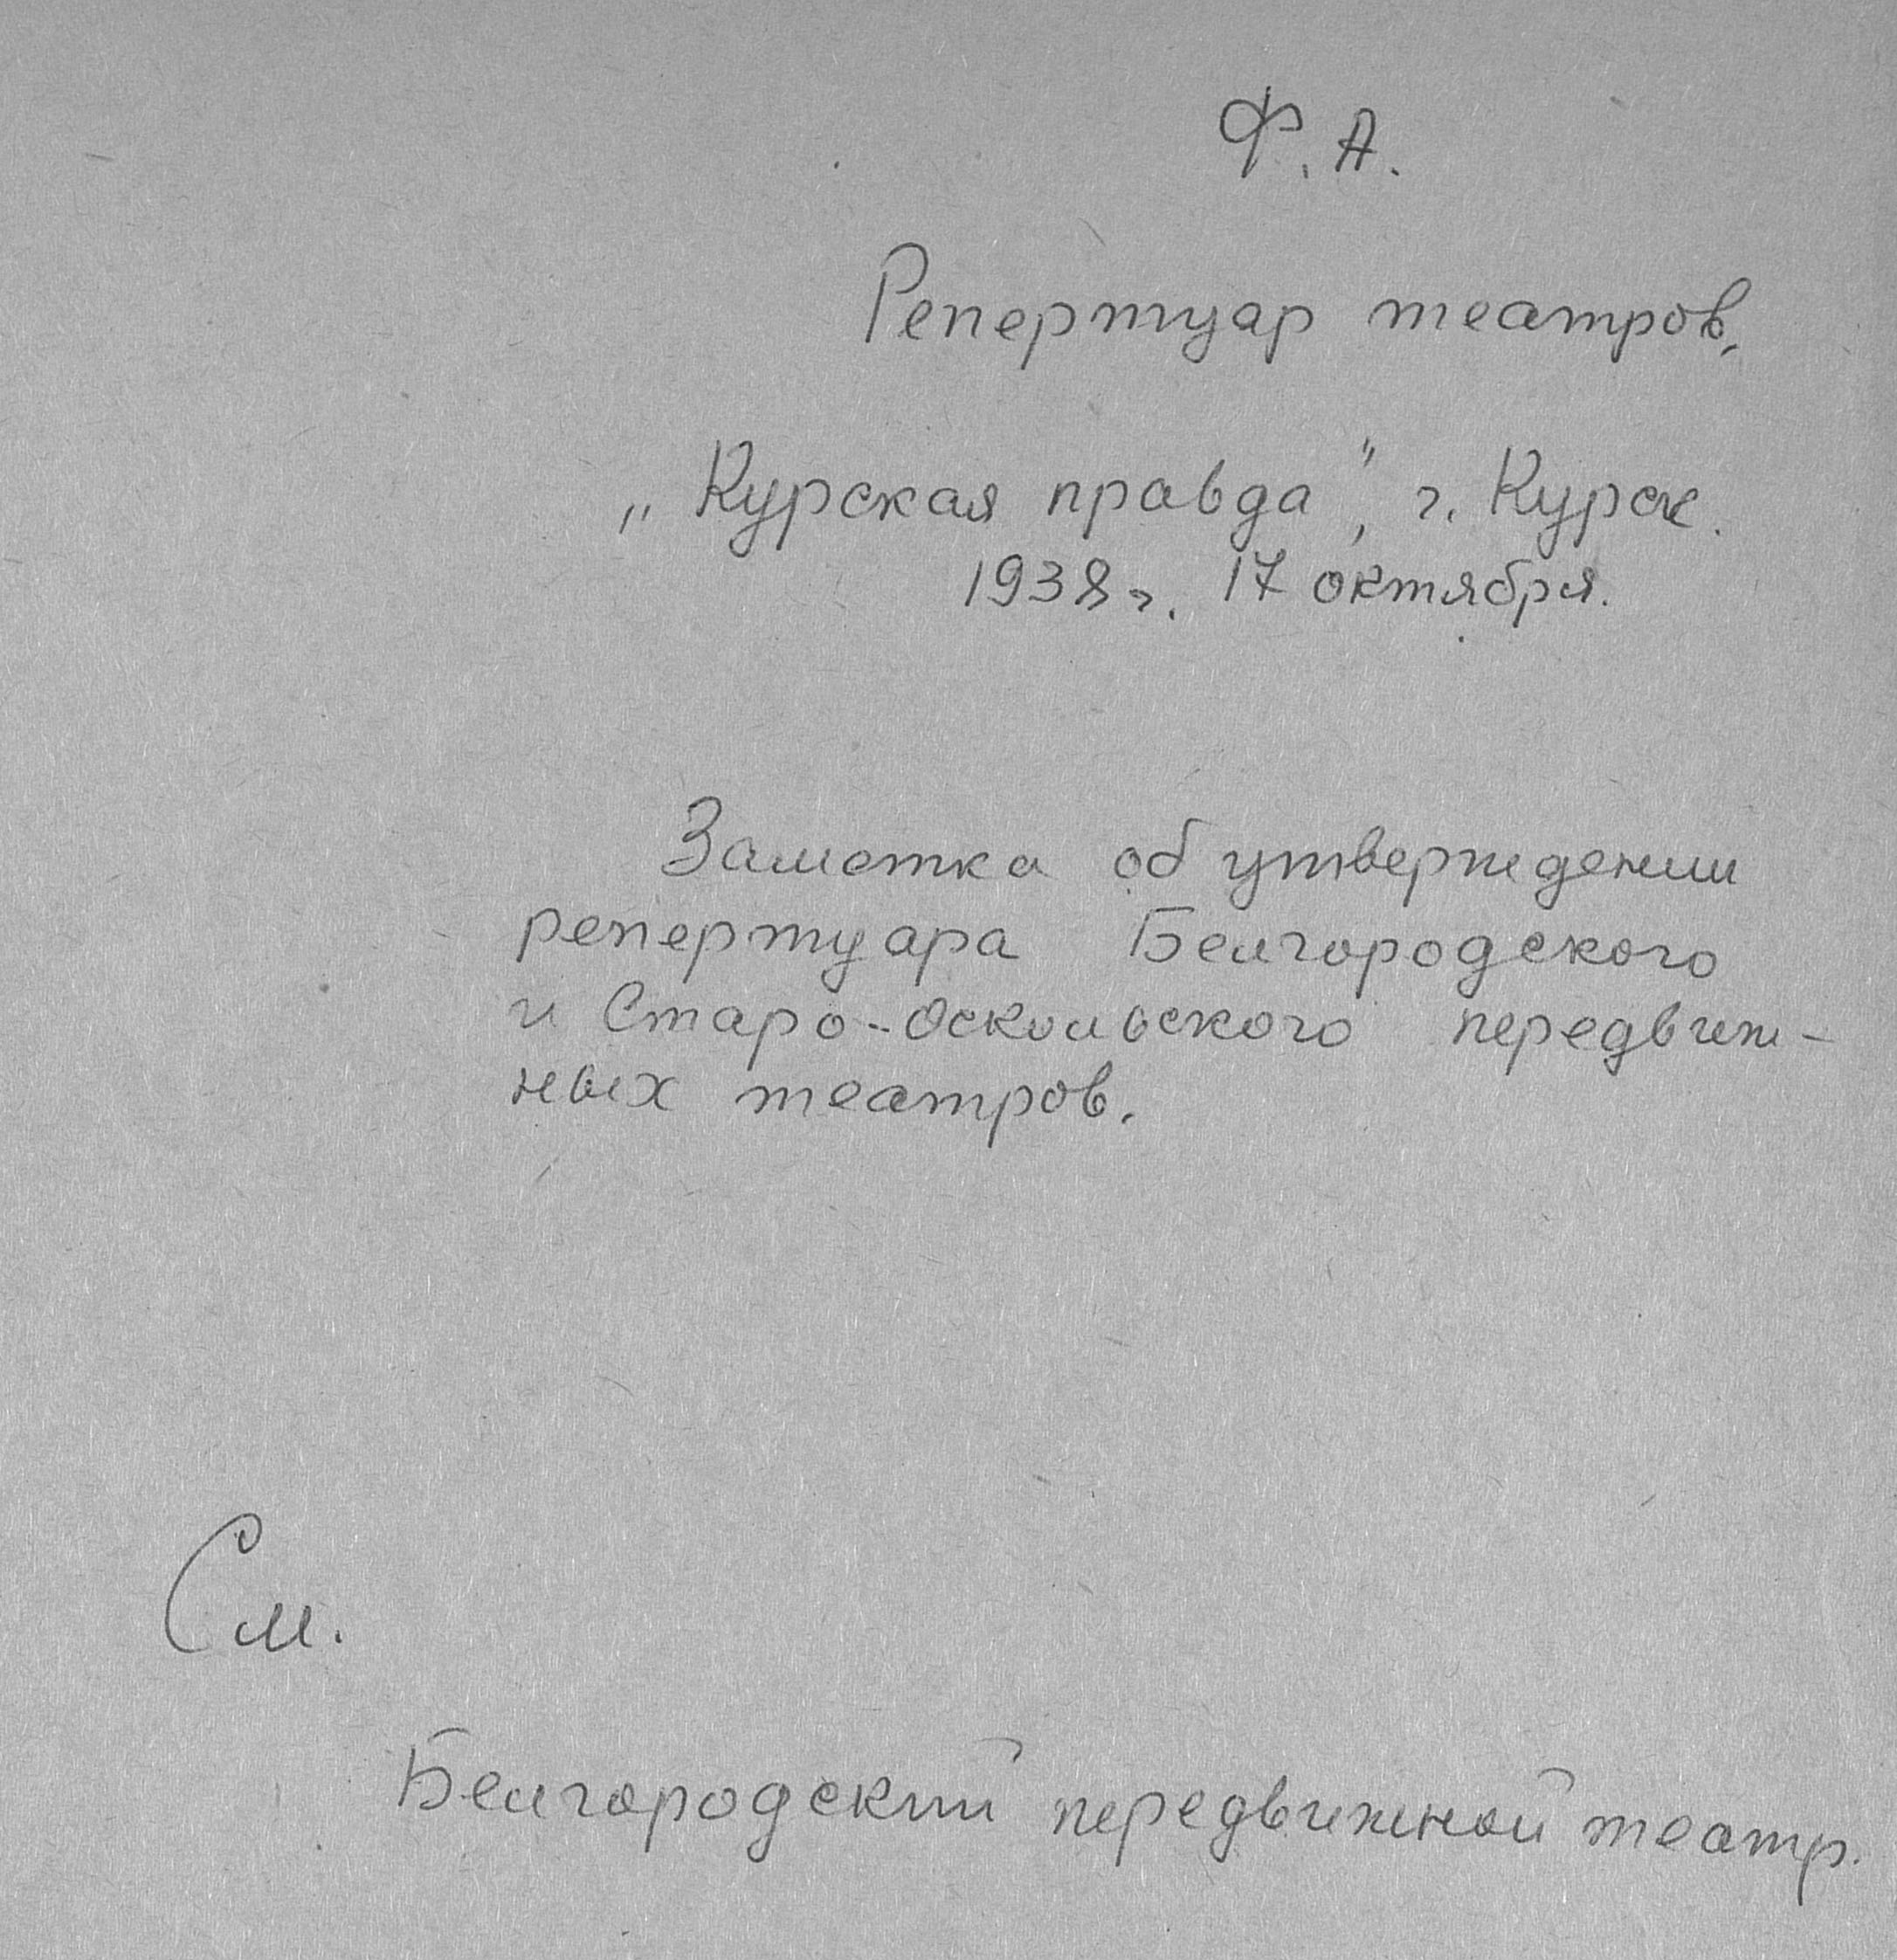 Ф. А.
Репертуар театров.
„Курская правда", г. Курск.
1938 г. 17 октября.
Заметка об утверждении
репертуара Белгородского
и Старо-Оскольского передвиж-
ных театров.
См.
Белгородский передвижной театр.